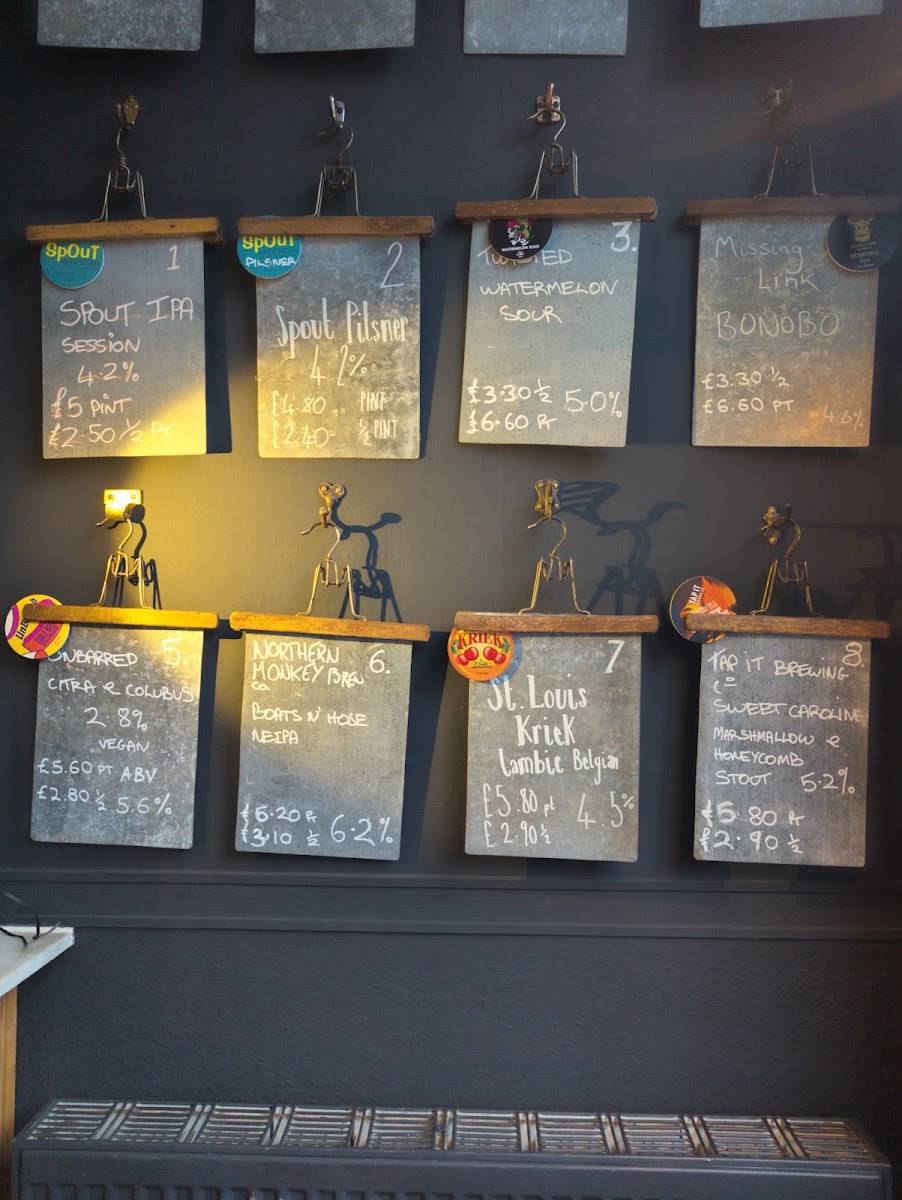 SPOUT
1
SPOUT IPA
SESSION
4.2%
£5 PINT
£2.50 ½ PT
SPOUT
PILSNER
2
Spout Pilsner
4.2%
£4.80 PINT
£2.40 ½ PINT
WATERMELON SOUR
3.
TWISTED
WATERMELON
SOUR
£3.30 ½
£6.60 PT
5.0%
BONOBO
Missing
Link
BONOBO
£3.30 ½
£6.60 PT
4.6%
5.
UNBARRED
CITRA & COLUMBUS
2.8%
VEGAN
£5.60 PT ABV
£2.80 ½ 5.6%
NORTHERN
MONKEY BREW
CO.
6.
BOATS N' HOSE
NEIPA
£6.20 PT
£3.10 ½ 6.2%
KRIEK
7
St. Louis
Kriek
Lambic Belgian
£5.80 pt
£2.90 ½
4.5%
TAP IT
8.
TAP IT BREWING
Co
SWEET CAROLINE
MARSHMALLOW &
HONEYCOMB
STOUT 5.2%
£5.80 PT
£2.90 ½